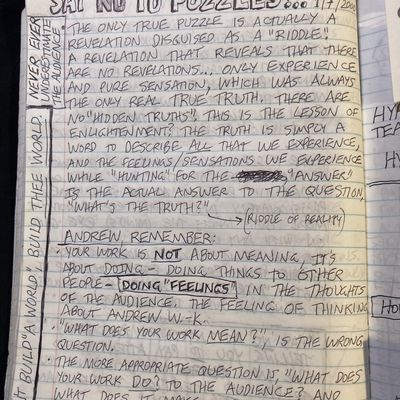 SAY NO TO PUZZLES... 1/7/200
THE ONLY TRUE PUZZLE IS ACTUALLY A
REVELATION DISGUISED AS A "RIDDLE".
A REVELATION THAT REVEALS THAT THERE
ARE NO REVELATIONS... ONLY EXPERIENCE
AND PURE SENSATION, WHICH WAS ALWAYS
THE ONLY REAL TRUE TRUTH. THERE ARE
NO "HIDDEN TRUTHS". THIS IS THE LESSON OF
ENLIGHTENMENT? THE TRUTH IS SIMPLY A
WORD TO DESCRIBE ALL THAT WE EXPERIENCE,
AND THE FEELINGS/SENSATIONS WE EXPERIENCE
WHILE "HUNTING" FOR THE "ANSWER"
IS THE ACTUAL ANSWER TO THE QUESTION,
"WHAT'S THE TRUTH?"
(RIDDLE OF REALITY)
ANDREW, REMEMBER:
• YOUR WORK IS NOT ABOUT MEANING, IT'S
ABOUT DOING - DOING THINGS TO OTHER
PEOPLE - DOING "FEELINGS" IN THE THOUGHTS
OF THE AUDIENCE. THE FEELING OF THINKING
ABOUT ANDREW W.-K.
• "WHAT DOES YOUR WORK MEAN?", IS THE WRONG
QUESTION.
• THE MORE APPROPRIATE QUESTION IS "WHAT DOES
YOUR WORK DO? TO THE AUDIENCE? AND
WHAT DOES IT MAKE
NEVER EVER
UNDERESTIMATE
THE AUDIENCE
BUILD "A WORLD", BUILD THEE WORLD.
HY
TEA
HY
HO